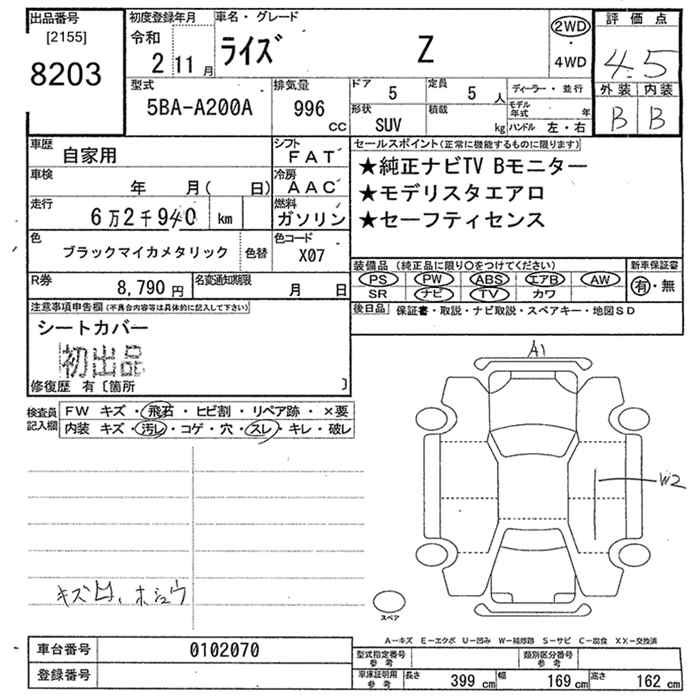 出品番号
[2155]
8203
初度登録年月
令和
2年 11月
車名・グレード
ライズ Z
2WD
・
4WD
評価点
4.5
外装 内装
B B
型式
5BA-A200A
排気量
996
CC
ドア 5
定員 5 人
形状 SUV
積載 kg
ディーラー・並行
モデル年式 年
ハンドル 左・右
車歴 自家用
シフト FAT
車検 年 月( 日)
冷房 AAC
走行 6万2千940 km
燃料 ガソリン
色 ブラックマイカメタリック 色替
色コード X07
R券 8,790円
名変通知期限 月 日
セールスポイント(正常に機能するものに限ります)
★純正ナビTV Bモニター
★モデリスタエアロ
★セーフティセンス
装備品 (純正品に限り○をつけてください)
新車保証書
PS PW ABS エアB AW
SR ナビ TV カワ
有・無
後日品 保証書・取説・ナビ取説・スペアキー・地図SD
注意事項申告欄 (不具合内容等は具体的に記入して下さい)
シートカバー
初出品
修復歴 有〔箇所 〕
検査員
記入欄
FW キズ・飛石・ヒビ割・リペア跡・×要
内装 キズ・汚レ・コゲ・穴・スレ・キレ・破レ
A1
W2
キズ凹、ホシュウ
スペア
A-キズ E-エクボ U-凹み W-補修跡 S-サビ C-腐食 XX-交換済
車台番号 0102070
登録番号
型式指定番号
参考
類別区分番号
参考
車庫証明用
参考
長さ 399 cm
幅 169 cm
高さ 162 cm